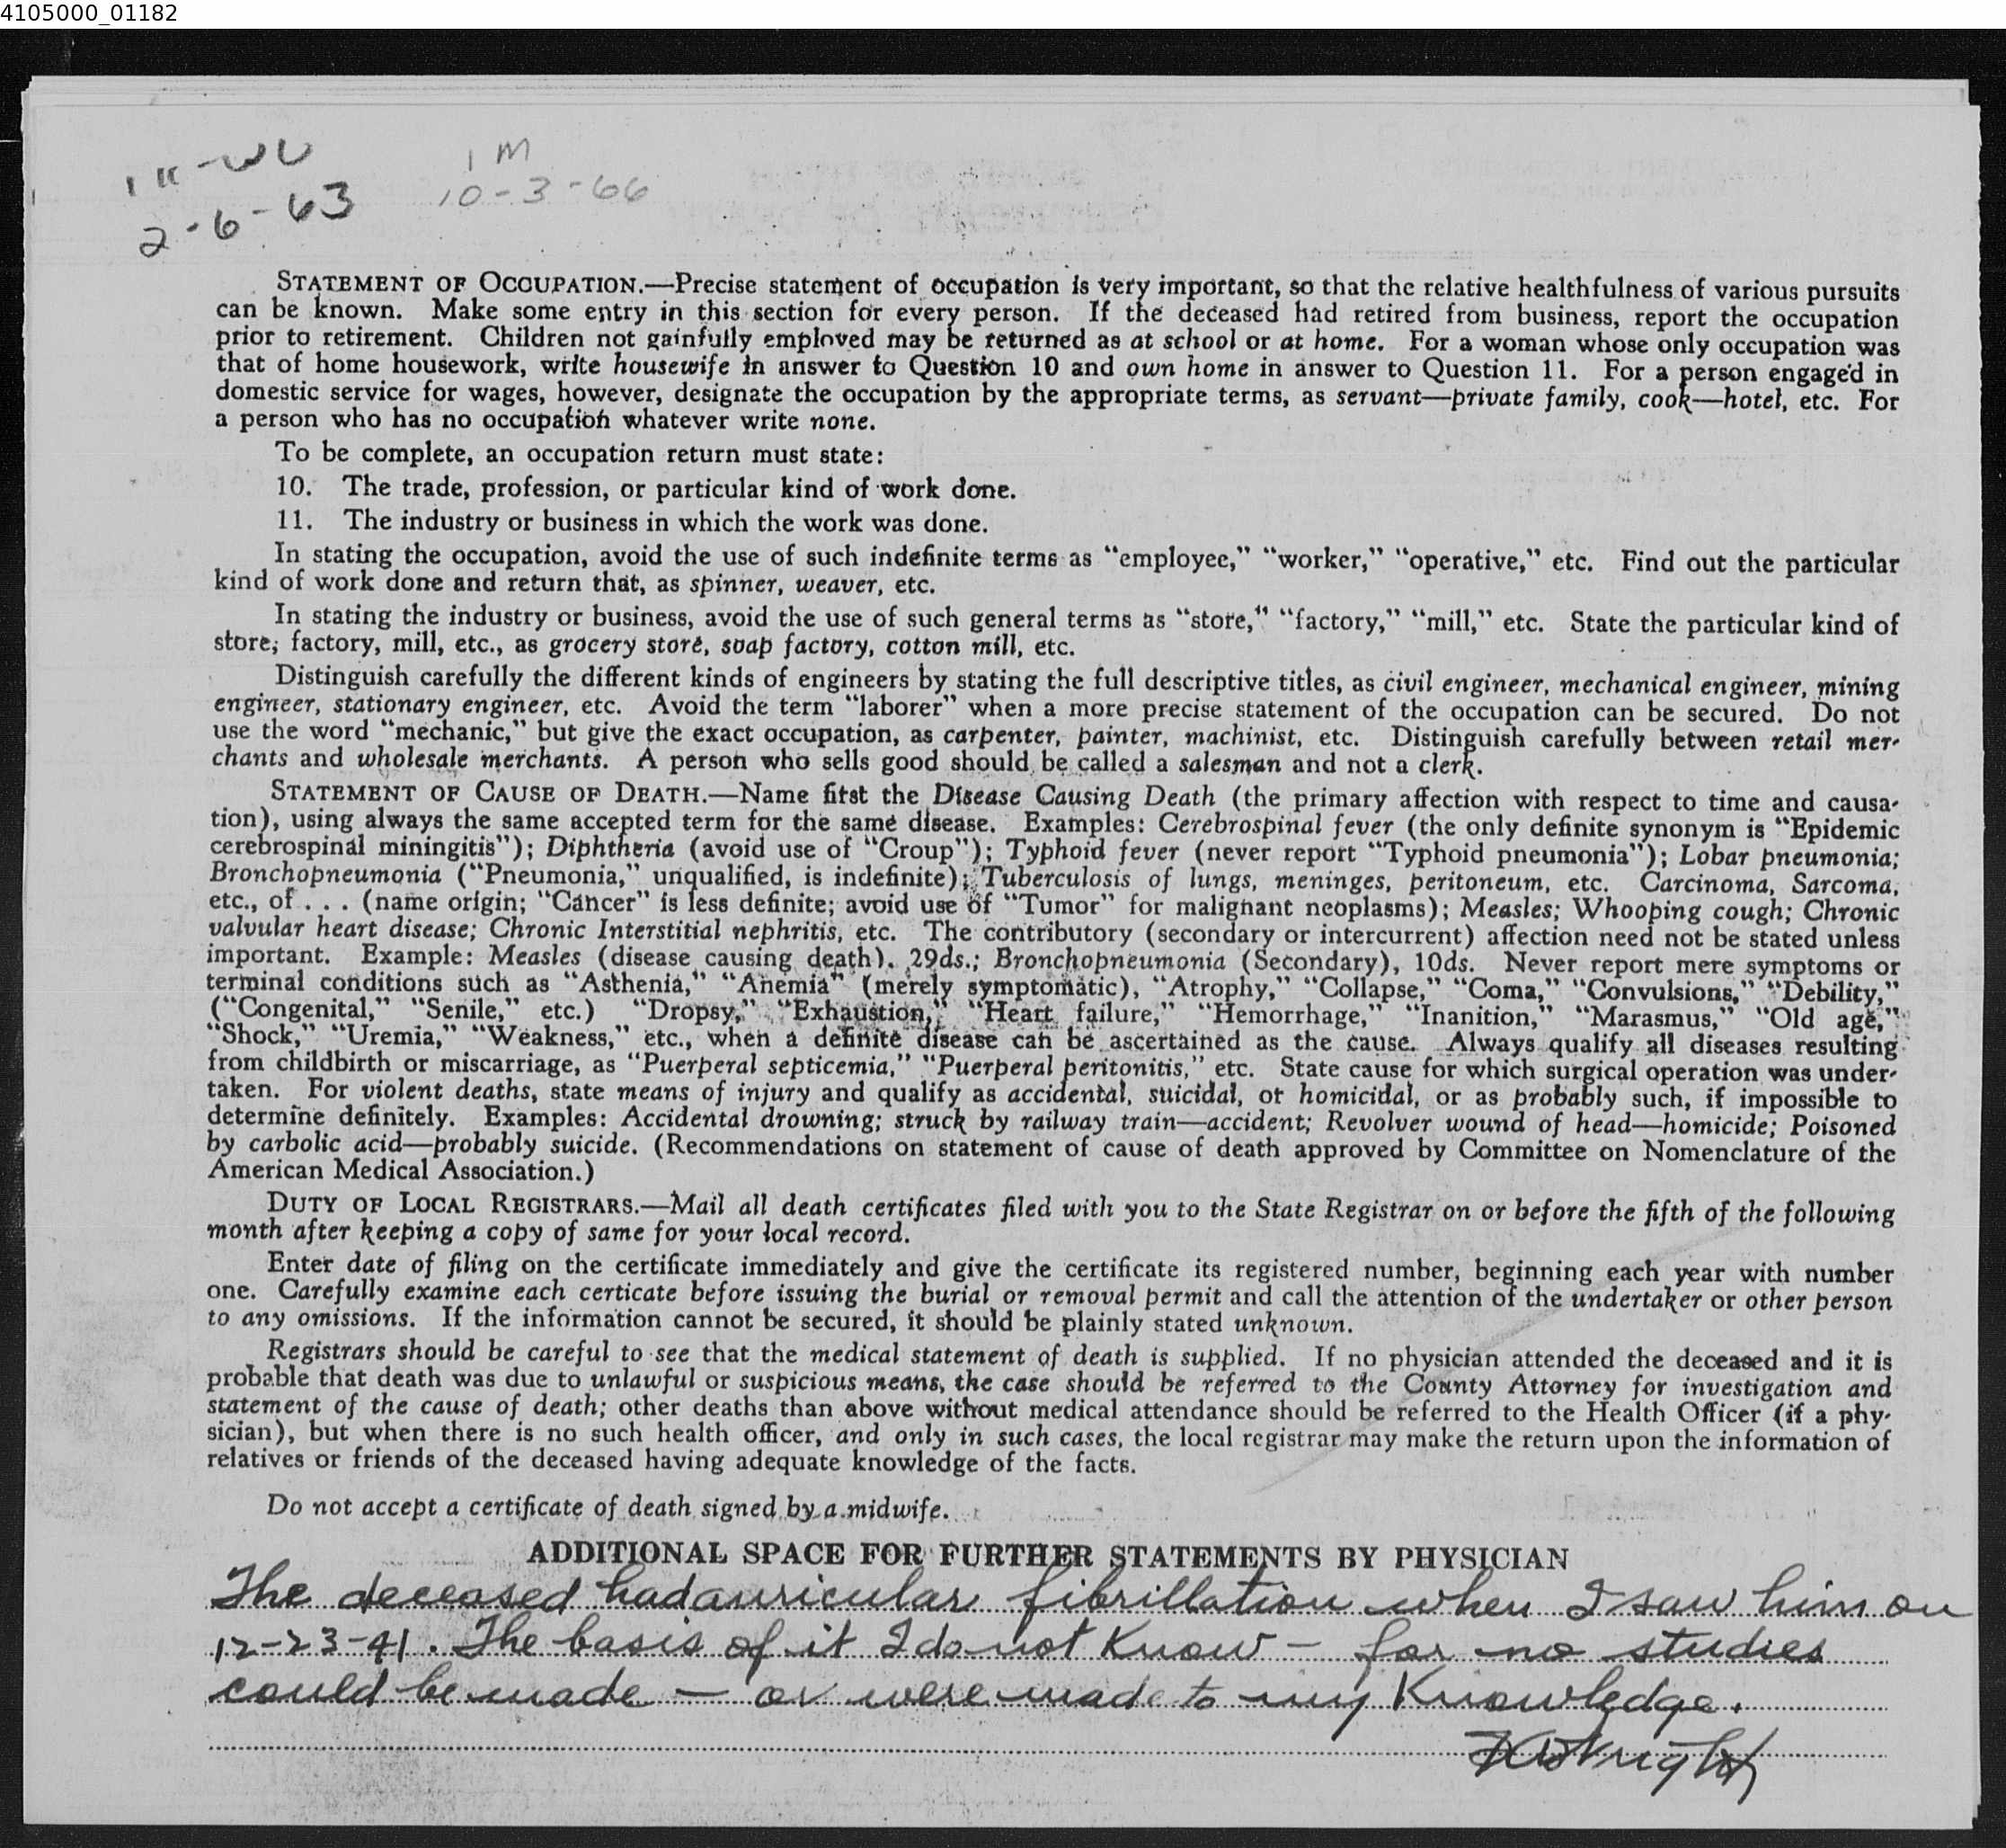 4105000_01182
2-6-63
1 M
10-3-66
STATEMENT OF OCCUPATION.—Precise statement of occupation is very important, so that the relative healthfulness of various pursuits
can be known. Make some entry in this section for every person. If the deceased had retired from business, report the occupation
prior to retirement. Children not gainfully employed may be returned as at school or at home. For a woman whose only occupation was
that of home housework, write housewife in answer to Question 10 and own home in answer to Question 11. For a person engaged in
domestic service for wages, however, designate the occupation by the appropriate terms, as servant—private family, cook—hotel, etc. For
a person who has no occupation whatever write none.
To be complete, an occupation return must state:
10. The trade, profession, or particular kind of work done.
11. The industry or business in which the work was done.
In stating the occupation, avoid the use of such indefinite terms as “employee,” “worker,” “operative,” etc. Find out the particular
kind of work done and return that, as spinner, weaver, etc.
In stating the industry or business, avoid the use of such general terms as “store,” “factory,” “mill,” etc. State the particular kind of
store; factory, mill, etc., as grocery store, soap factory, cotton mill, etc.
Distinguish carefully the different kinds of engineers by stating the full descriptive titles, as civil engineer, mechanical engineer, mining
engineer, stationary engineer, etc. Avoid the term “laborer” when a more precise statement of the occupation can be secured. Do not
use the word “mechanic,” but give the exact occupation, as carpenter, painter, machinist, etc. Distinguish carefully between retail mer-
chants and wholesale merchants. A person who sells good should be called a salesman and not a clerk.
STATEMENT OF CAUSE OF DEATH.—Name first the Disease Causing Death (the primary affection with respect to time and causa-
tion), using always the same accepted term for the same disease. Examples: Cerebrospinal fever (the only definite synonym is “Epidemic
cerebrospinal miningitis”); Diphtheria (avoid use of “Croup”); Typhoid fever (never report “Typhoid pneumonia”); Lobar pneumonia;
Bronchopneumonia (“Pneumonia,” unqualified, is indefinite); Tuberculosis of lungs, meninges, peritoneum, etc. Carcinoma, Sarcoma,
etc., of . . . (name origin; “Cancer” is less definite; avoid use of “Tumor” for malignant neoplasms); Measles; Whooping cough; Chronic
valvular heart disease; Chronic Interstitial nephritis, etc. The contributory (secondary or intercurrent) affection need not be stated unless
important. Example: Measles (disease causing death), 29ds.; Bronchopneumonia (Secondary), 10ds. Never report mere symptoms or
terminal conditions such as “Asthenia,” “Anemia” (merely symptomatic), “Atrophy,” “Collapse,” “Coma,” “Convulsions,” “Debility,”
(“Congenital,” “Senile,” etc.) “Dropsy,” “Exhaustion,” “Heart failure,” “Hemorrhage,” “Inanition,” “Marasmus,” “Old age,”
“Shock,” “Uremia,” “Weakness,” etc., when a definite disease can be ascertained as the cause. Always qualify all diseases resulting
from childbirth or miscarriage, as “Puerperal septicemia,” “Puerperal peritonitis,” etc. State cause for which surgical operation was under-
taken. For violent deaths, state means of injury and qualify as accidental, suicidal, or homicidal, or as probably such, if impossible to
determine definitely. Examples: Accidental drowning; struck by railway train—accident; Revolver wound of head—homicide; Poisoned
by carbolic acid—probably suicide. (Recommendations on statement of cause of death approved by Committee on Nomenclature of the
American Medical Association.)
DUTY OF LOCAL REGISTRARS.—Mail all death certificates filed with you to the State Registrar on or before the fifth of the following
month after keeping a copy of same for your local record.
Enter date of filing on the certificate immediately and give the certificate its registered number, beginning each year with number
one. Carefully examine each certicate before issuing the burial or removal permit and call the attention of the undertaker or other person
to any omissions. If the information cannot be secured, it should be plainly stated unknown.
Registrars should be careful to see that the medical statement of death is supplied. If no physician attended the deceased and it is
probable that death was due to unlawful or suspicious means, the case should be referred to the County Attorney for investigation and
statement of the cause of death; other deaths than above without medical attendance should be referred to the Health Officer (if a phy-
sician), but when there is no such health officer, and only in such cases, the local registrar may make the return upon the information of
relatives or friends of the deceased having adequate knowledge of the facts.
Do not accept a certificate of death signed by a midwife.
ADDITIONAL SPACE FOR FURTHER STATEMENTS BY PHYSICIAN
The deceased had auricular fibrillation when I saw him on
12-23-41. The basis of it I do not know — for no studies
could be made — or were made to my Knowledge.
Wright